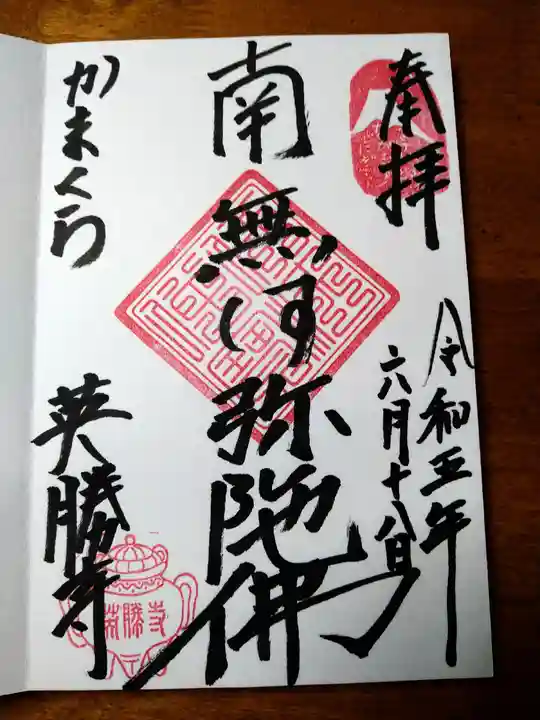 奉拝
令和五年
六月十八日
南無阿弥陀佛
かまくら
英勝寺
英勝寺